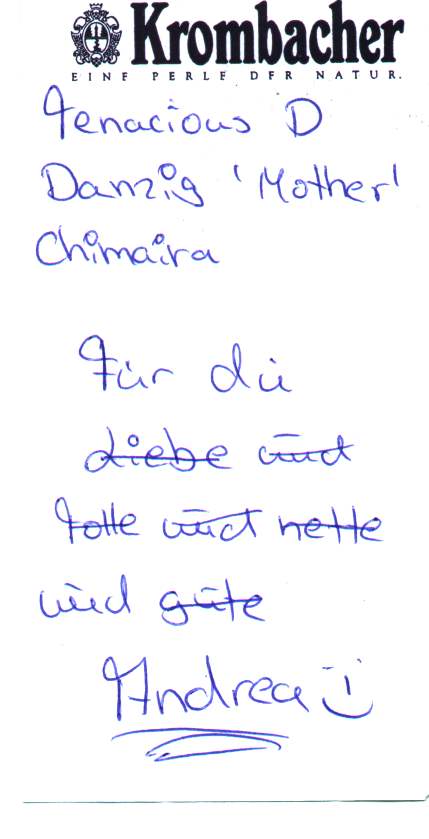 Krombacher
EINE PERLE DER NATUR.
Tenacious D
Danzig 'Mother'
Chimaira
Für die
Liebe und
tolle und nette
und gute
Andrea